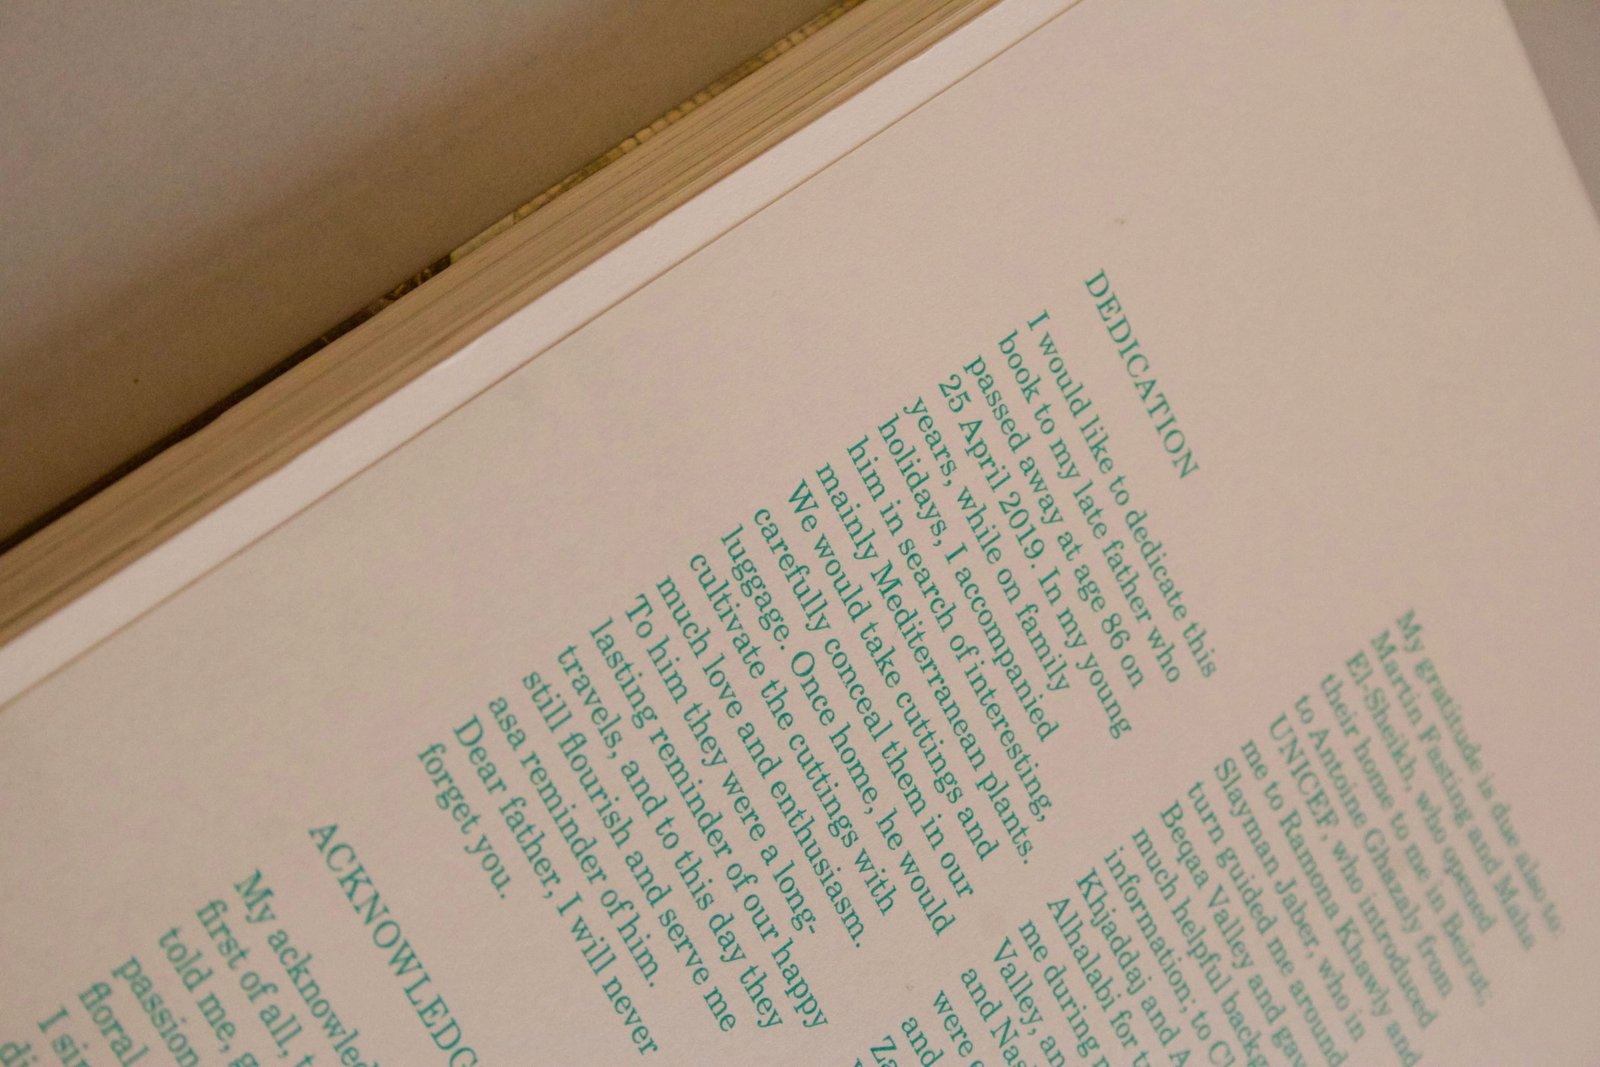 DEDICATION
I would like to dedicate this
book to my late father who
passed away at age 86 on
25 April 2019. In my young
years, while on family
holidays, I accompanied
him in search of interesting,
mainly Mediterranean plants.
We would take cuttings and
carefully conceal them in our
luggage. Once home, he would
cultivate the cuttings with
much love and enthusiasm.
To him they were a long-
lasting reminder of our happy
travels, and to this day they
still flourish and serve me
asa reminder of him.
Dear father, I will never
forget you.
ACKNOWLEDG
My acknowled
first of all, t
told me, g
passion
floral
I sin
di
My gratitude is due also to
Martin Fasting and Maha
El-Sheikh, who opened
their home to me in Beirut;
to Antoine Ghazaly from
UNICEF, who introduced
me to Ramona Khawly and
Slayman Jaber, who in
turn guided me around
Beqaa Valley and gav
much helpful backg
information; to Cl
Khjaddaj and A
Alhalabi for t
me during m
Valley, an
and Nas
were
and
Za